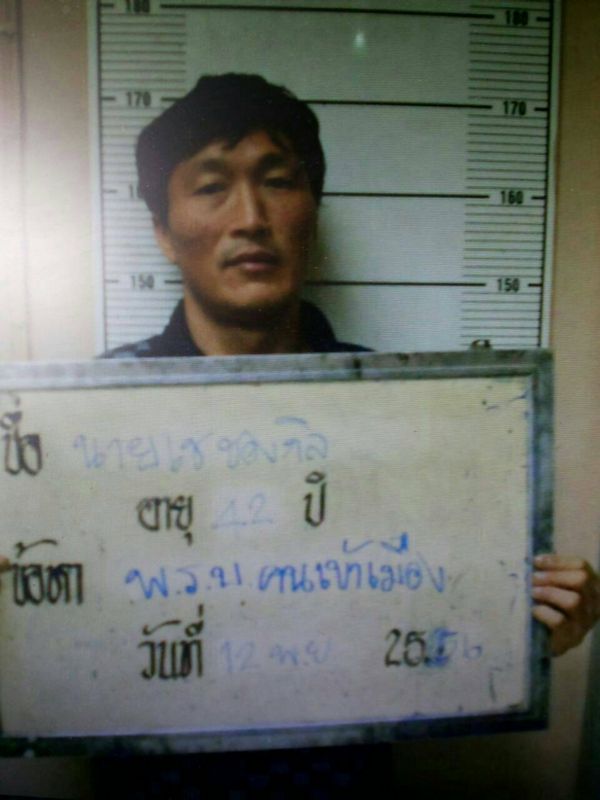 180 180
170 170
160
150 150
ชื่อ นาย
อายุ 42 ปี
ข้อหา พ.ร.บ. คนเข้าเมือง
วันที่ 12 พ.ย 2556